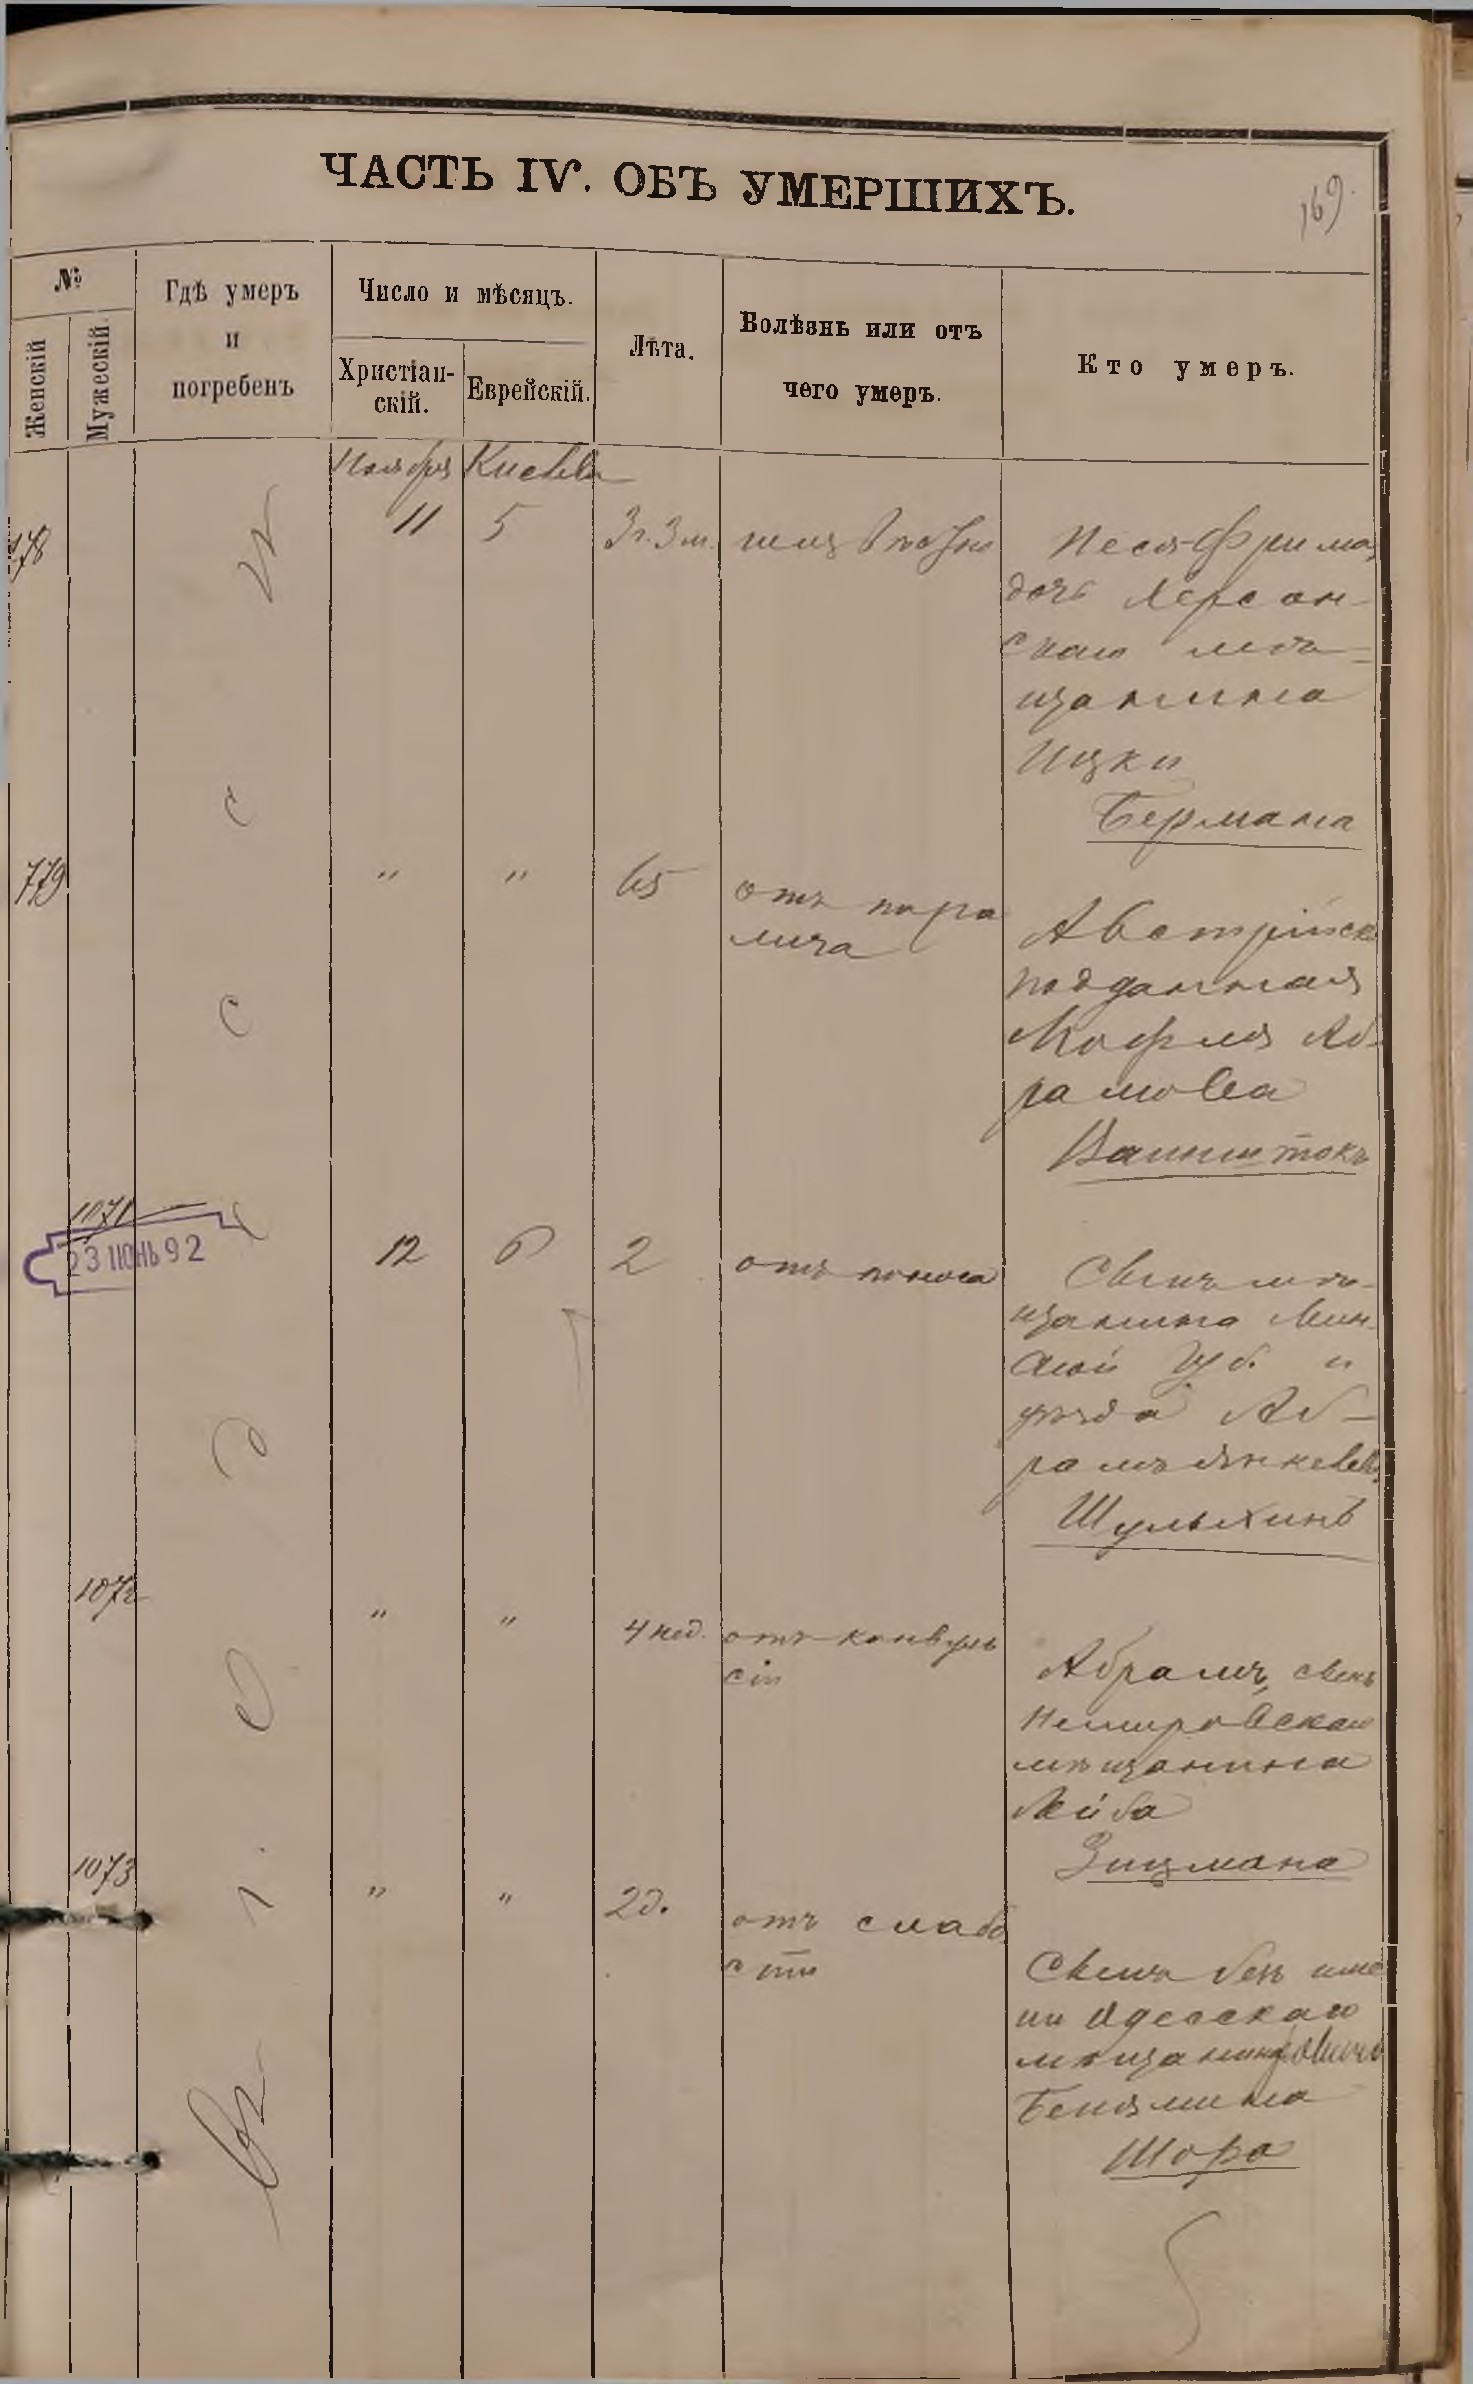 ЧАСТЬ IV. ОБЪ УМЕРШИХЪ.
169.
№
Женскій
Мужескій
Гдѣ умеръ
и
погребенъ
Число и мѣсяцъ.
Христіан-
скій.
Еврейскій.
Лѣта.
Болѣзнь или отъ
чего умеръ.
Кто умеръ.
Ноября Кислева
778
11 5 3 г. 3 м.
Песя-Фрима
дочь Херсон-
скаго мѣ-
щанина
Ицки
Бермана
779
" " 65 отъ пара
лича
Австрійск
подданная
Абрамова
Ваинштокъ
1071
23 ІЮНЬ 92
12 6 2 отъ поноса
Сынъ мѣ-
щанина Мин-
ской Губ. и
уѣзда Аб-
рамъ Янкевъ
Шулькинъ
1072
" " 4 нед. отъ конвуль
сіи
Абрамъ, сынъ
Немировскаго
мѣщанина
Лейба
Зицмана
1073
" " 2 д. отъ слабо
сти
Сынъ безъ име
ни Одесскаго
мѣщанина
Беньямина
Шора
Въ г. О д е с с ѣ